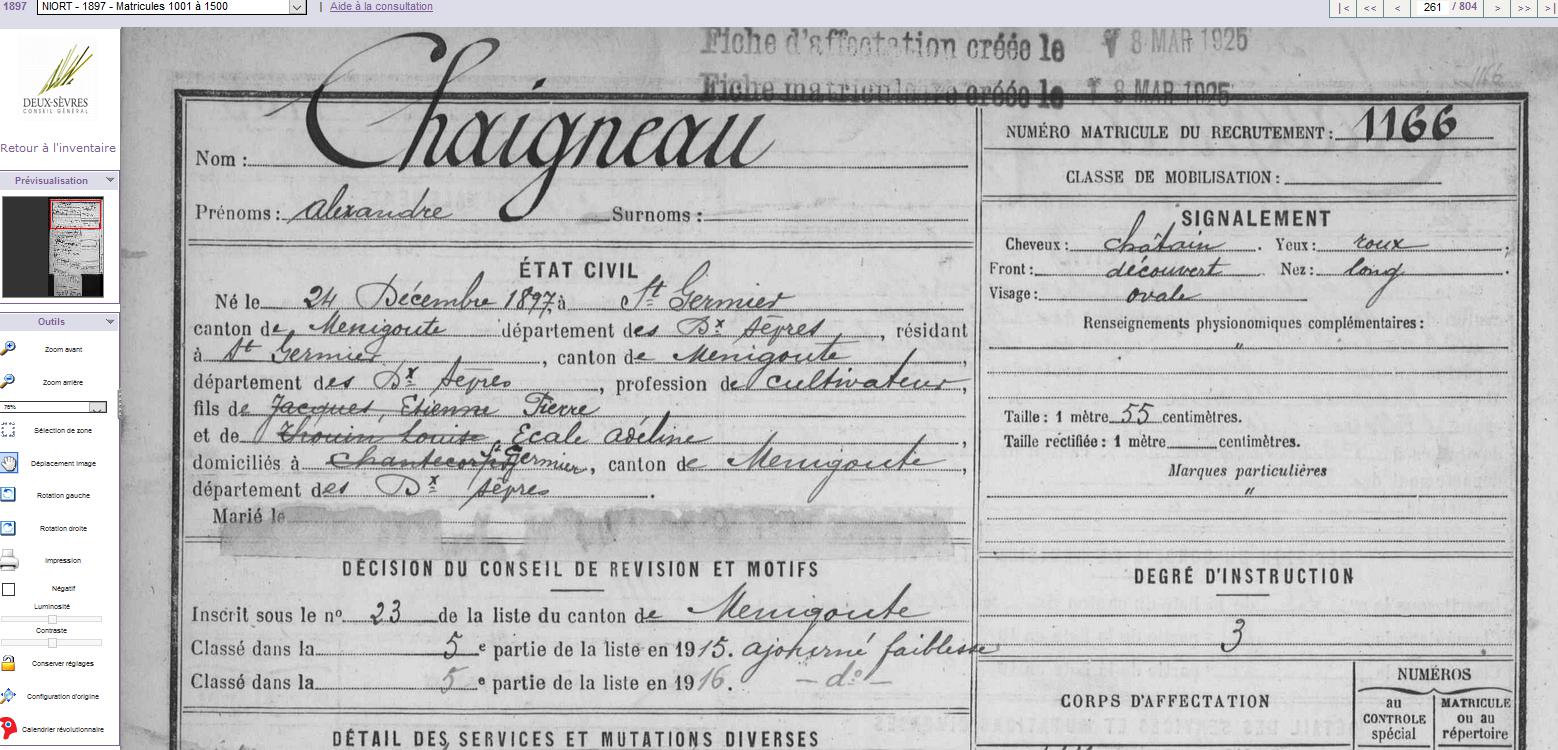 1897 NIORT - 1897 - Matricules 1001 à 1500 | Aide à la consultation |< << < 261 / 804 > >> >|
DEUX-SÈVRES
CONSEIL GÉNÉRAL
Retour à l'inventaire
Prévisualisation
Outils
Zoom avant
Zoom arrière
75%
Sélection de zone
Déplacement image
Rotation gauche
Rotation droite
Impression
Négatif
Luminosité
Contraste
Conserver réglages
Configuration d'origine
Calendrier révolutionnaire
Fiche d'affectation créée le 8 MAR 1925
Fiche matriculaire créée le 8 MAR 1925
Nom : Chaigneau
Prénoms : alexandre Surnoms :
ÉTAT CIVIL
Né le 24 Décembre 1897, à St Germier
canton de Menigoute département des Dx Sèvres, résidant
à St Germier, canton de Menigoute,
département des Dx Sèvres, profession de cultivateur,
fils de Jacques, Etienne Pierre
et de Thouin Louise, Ecale adéline,
domiciliés à Chantecorps St Germier, canton de Menigoute,
département des Dx Sèvres.
Marié le
DÉCISION DU CONSEIL DE REVISION ET MOTIFS
Inscrit sous le no 23 de la liste du canton de Menigoute
Classé dans la 5e partie de la liste en 1915. ajourné faiblesse
Classé dans la 5e partie de la liste en 1916. - do -
DÉTAIL DES SERVICES ET MUTATIONS DIVERSES
NUMÉRO MATRICULE DU RECRUTEMENT : 1166
CLASSE DE MOBILISATION :
SIGNALEMENT
Cheveux : châtain. Yeux : roux
Front : découvert Nez : long.
Visage : ovale
Renseignements physionomiques complémentaires :
"
Taille : 1 mètre 55 centimètres.
Taille rectifiée : 1 mètre centimètres.
Marques particulières
"
DEGRÉ D'INSTRUCTION
3
CORPS D'AFFECTATION
NUMÉROS
au CONTROLE spécial
MATRICULE ou au répertoire